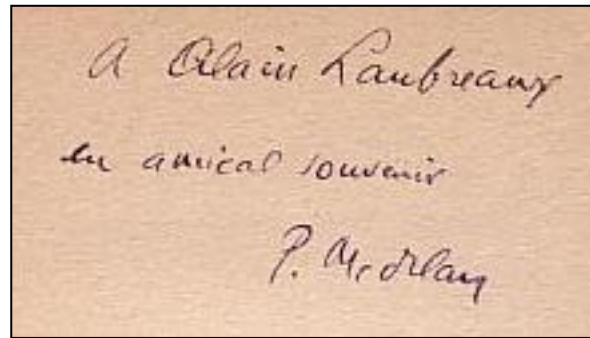 A Alain Laubreaux
en amical souvenir
P. Mc Orlan